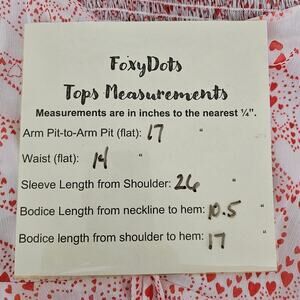 FoxyDots
Tops Measurements
Measurements are in inches to the nearest ¼".
Arm Pit-to-Arm Pit (flat): 17 "
Waist (flat): 14 "
Sleeve Length from Shoulder: 26 "
Bodice Length from neckline to hem: 10.5 "
Bodice length from shoulder to hem: 17 "